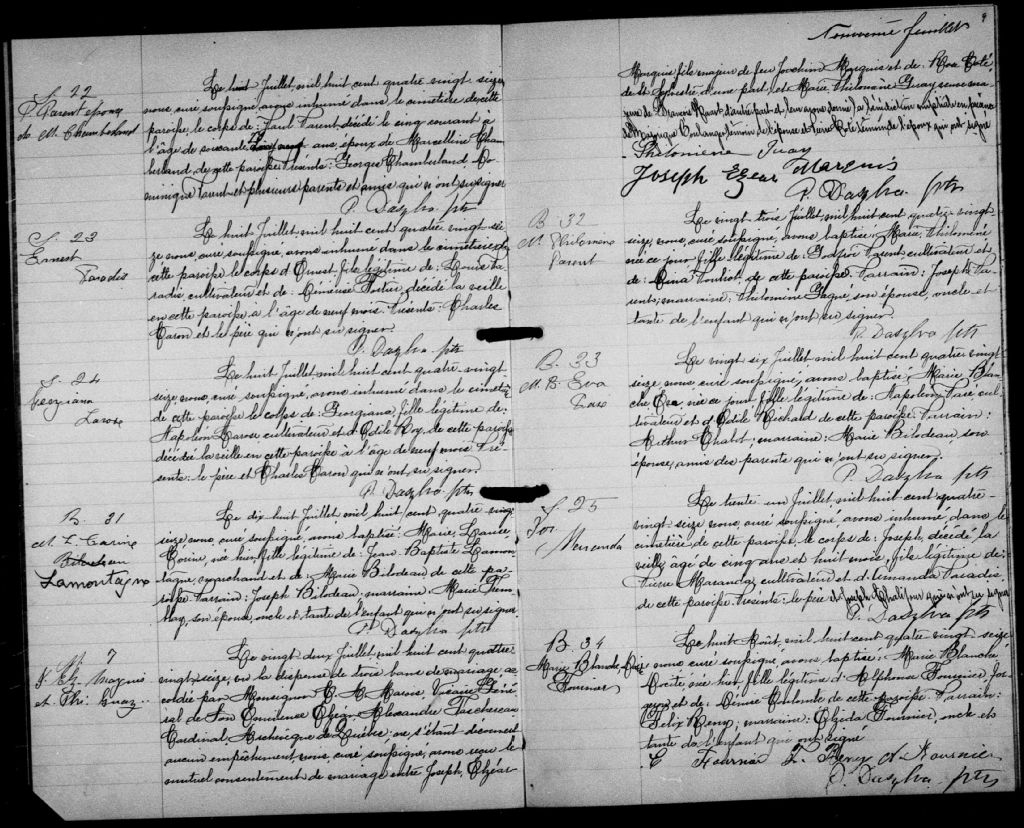 S. 22
P. Parent époux
de M. Chamberland
Le huit Juillet mil huit cent quatre vingt seize
nous, curé soussigné, avons inhumé dans le cimetière de cette
paroisse, le corps de: Paul Parent décédé le cinq courant à
l'âge de soixante ans, époux de Marcelline Cham
berland, de cette paroisse. Présents: Georges Chamberland Do
minique Parent et plusieurs parents et amis qui n'ont su signer
P. Daszlva ptr
S. 23
Ernest
Paradis
Le huit Juillet mil huit cent quatre vingt sei
ze nous, curé soussigné, avons inhumé dans le cimetière de
cette paroisse le corps d'Ernest, fils légitime de: Louis Pa
radis cultivateur et de: Fortier, décédé la veille
en cette paroisse à l'âge de neuf mois. Présents: Charles
Caron et le père qui n'ont su signer.
P. Daszlva ptr
S. 24
Georgiana
Larose
Le huit Juillet mil huit cent quatre vingt
seize, nous, curé soussigné, avons inhumé dans le cimetière
de cette paroisse le corps de: Georgiana, fille légitime de:
Napoléon Larose cultivateur et d'Odile Roy, de cette paroisse
décédée la veille en cette paroisse à l'âge de neuf mois. Pré
sents: le père et Charles Caron qui n'ont su signer.
P. Daszlva ptr
B. 31
M. L. Corine
Bilodeau
Lamontagne
Le dix huit Juillet mil huit cent quatre vingt
seize nous, curé soussigné, avons baptisé: Marie, Laure
Corine, née hier, fille légitime de: Jean Baptiste Lamon
tagne, marchand et de: Marie Bilodeau de cette pa
roisse. Parrain: Joseph Bilodeau; marraine Marie Trem
blay, son épouse, oncle et tante de l'enfant qui ne signer
P. Daszlva ptr
M 7
J. Elz. Marquis
et Phi. Guay
Le vingt deux Juillet mil huit cent quatre
vingt seize, vu la dispense de trois bans de mariage ac
cordée par Monseigneur C. A. Marois, Vicaire Géné
ral de Son Eminence Elzéar Alexandre Taschereau
Cardinal, Archevêque de Québec; ne s'étant découvert
aucun empêchement, nous, curé, soussigné, avons reçu le
mutuel consentement de mariage entre Joseph, Elzéar
Neuvième feuillet
9
Marquis fils majeur de feu Joachim Marquis et de Rose Coté,
de St Sylvestre, d'une part, et Marie Philomène Guay
d'autre part et leur avons donné la bénédiction nuptiale en présence
de témoin de l'épouse et Coté témoin de l'époux qui ont signé
Philomène Guay
Joseph Elzear Marquis
P. Daszlva ptr
B. 32
M. Philomène
Parent
Le vingt trois Juillet mil huit cent quatre vingt
seize, nous, curé soussigné, avons baptisé: Marie, Philomène
née ce jour fille légitime de Parent cultivateur et
de: de cette paroisse. Parrain: Joseph Pa
rent; marraine: Philomène Gagné, son épouse, oncle et
tante de l'enfant qui n'ont su signer.
P. Daszlva ptr
B. 33
M. B. Eva
Paré
Le vingt six Juillet mil huit cent quatre vingt
seize, nous curé soussigné, avons baptisé: Marie Blan
che Eva née ce jour, fille légitime de: Napoléon Paré cul
tivateur et d'Odile de cette paroisse. Parrain:
Arthur Chabot; marraine: Marie Bilodeau son
épouse, amis des parents qui n'ont su signer.
P. Daszlva ptr
S. 25
Jos
Maranda
Le trente un Juillet mil huit cent quatre
vingt-seize nous, curé soussigné avons inhumé, dans le
cimetière de cette paroisse, le corps de: Joseph, décédé la
veille, âgé de cinq ans et huit mois, fils légitime de:
Pierre Maranda cultivateur et d'Amanda Paradis
de cette paroisse. Présents: le père et Joseph qui n'ont su signer
P. Daszlva ptr
B 34
Marie Blanche,
Fournier
Le huit Août, mil huit cent quatre vingt seize
nous, curé soussigné, avons baptisé: Marie Blanche
née hier fille légitime d'Alphonse Fournier for
geron et de: de cette paroisse. Parrain:
Felix Remy; marraine: Fournier, oncle et
tante de l'enfant qui ont signé
Fournier F. Remy A. Fournier
P. Daszlva ptr